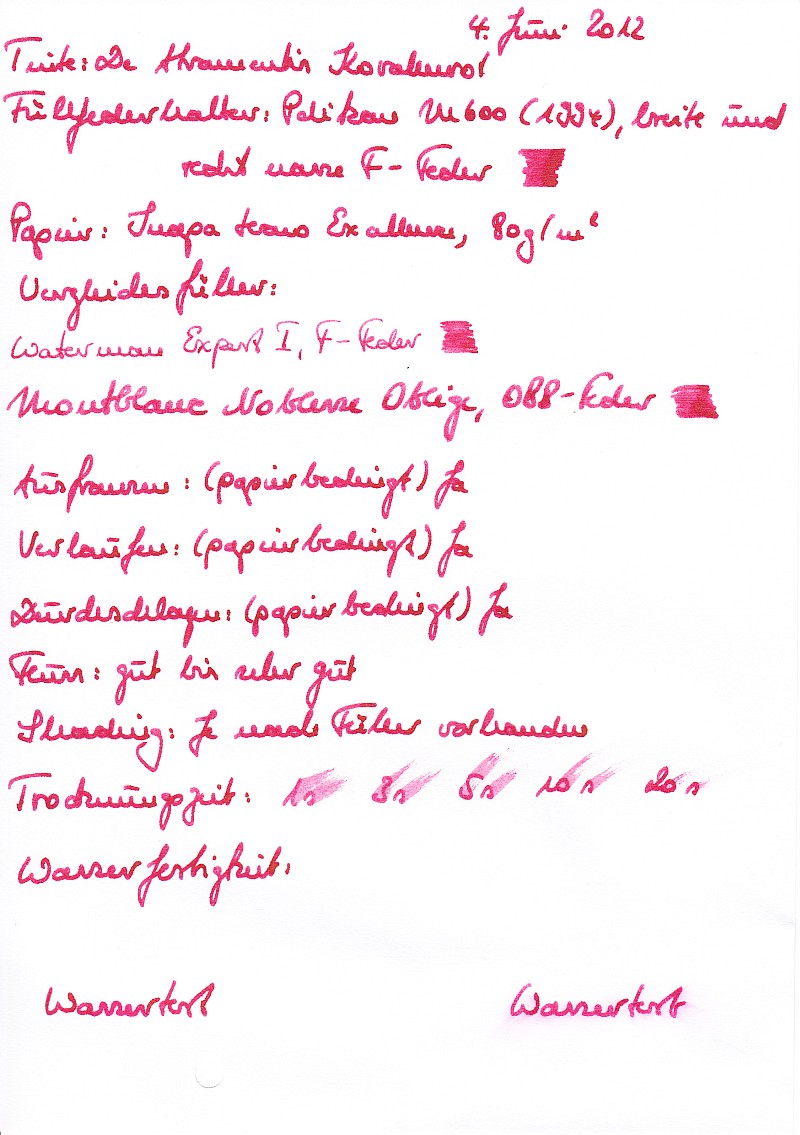 4. Juni 2012
Tinte: De Atramentis Korallenrot
Füllfederhalter: Pelikan M600 (1997), breite und
recht nasse F-Feder
Papier: Inapa tecno Excellence, 80g/m²
Vergleichsfüller:
Waterman Expert I, F-Feder
Montblanc Noblesse Oblige, OBB-Feder
Ausfransen: (papierbedingt) Ja
Verlaufen: (papierbedingt) Ja
Durchschlagen: (papierbedingt) Ja
Fluss: gut bis sehr gut
Shading: Je nach Füller vorhanden
Trocknungszeit: 1s 3s 5s 10s 20s
Wasserfestigkeit:
Wassertest Wassertest